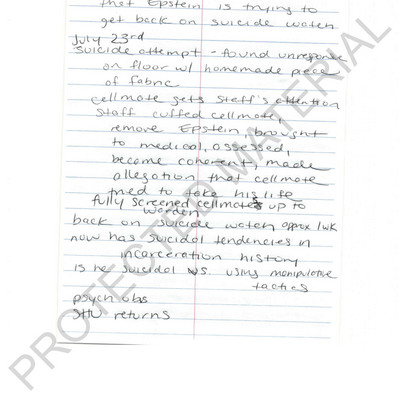 that Epstein is trying to
get back on suicide watch
July 23rd
suicide attempt - found unresponse
on floor w/ homemade piece
of fabric
cellmate gets staff's attention
Staff cuffed cellmate,
remove Epstein, brought
to medical, assessed,
became coherent, made
allegation that cellmate
tried to take his life
fully screened cellmates up to
warden
back on suicide watch approx 1wk
now has suicidal tendencies in
incarceration history
is he suicidal vs. using manipulative
tactics
psych obs
SHU returns
PROTECTED MATERIAL